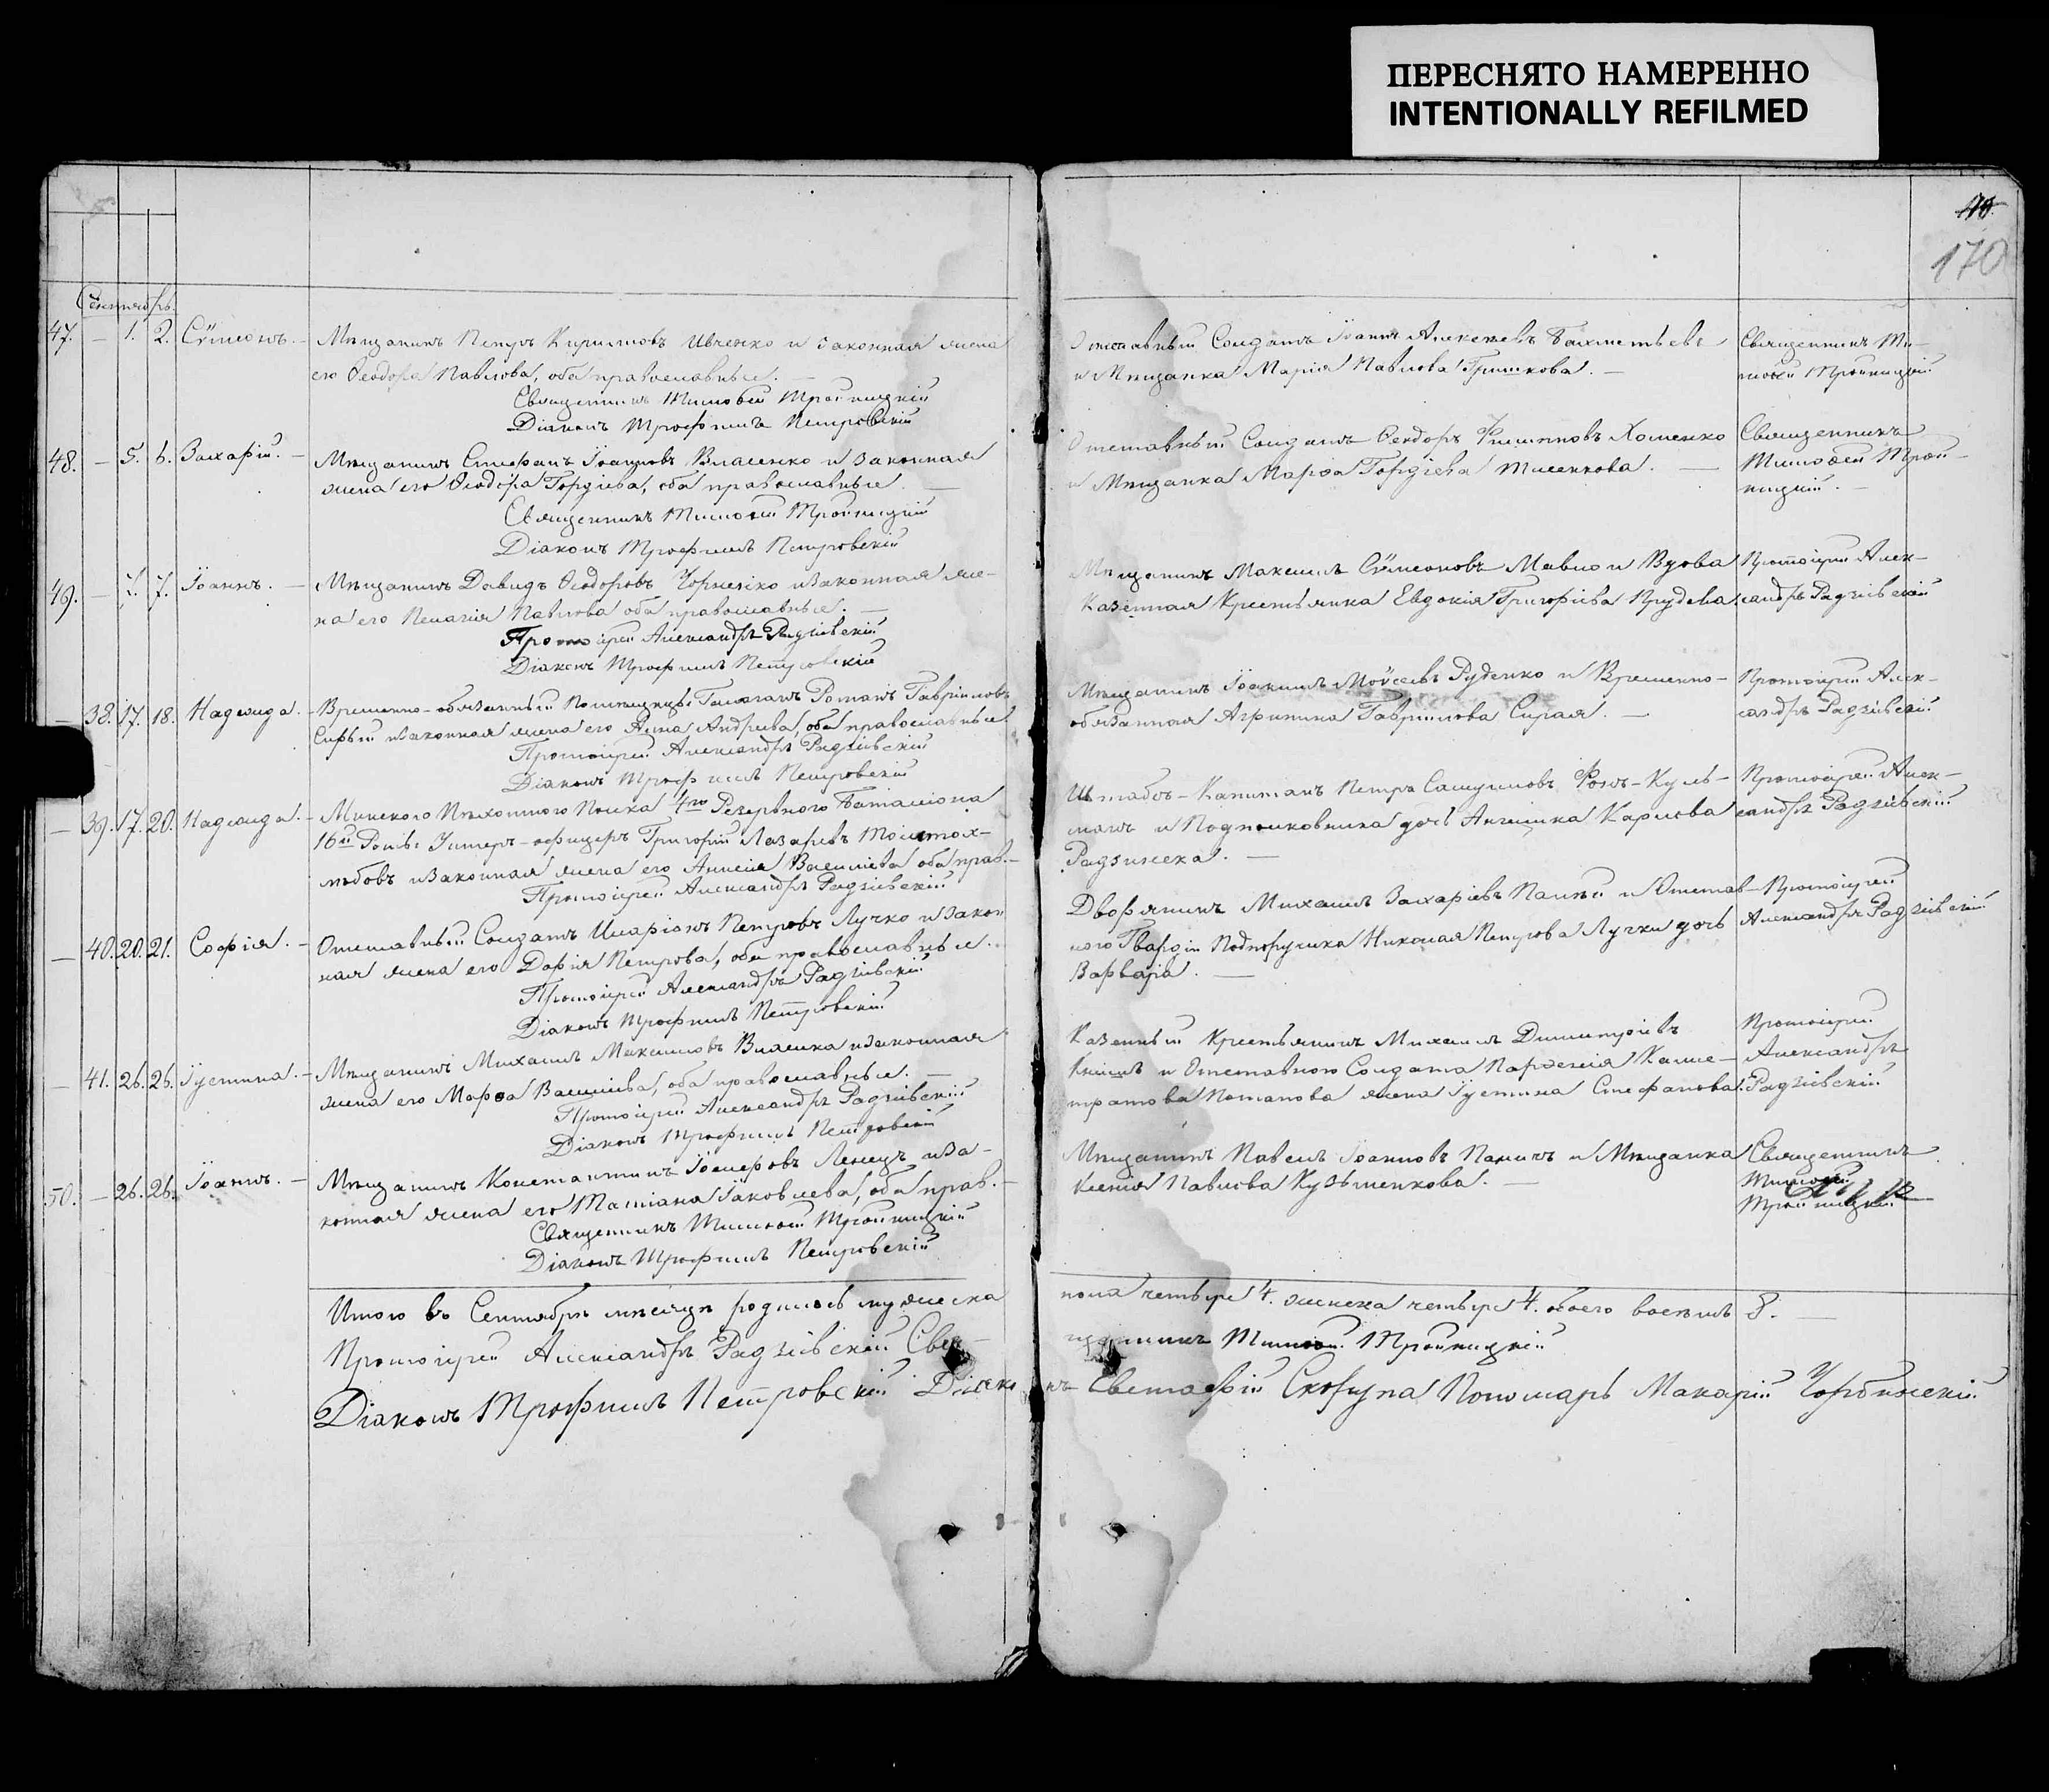 ПЕРЕСНЯТО НАМЕРЕННО
INTENTIONALLY REFILMED
170
Сентябрь.
47. — 1. 2. Сѵмеонъ. — Мѣщанинъ Петръ Кириловъ Ивченко и законная жена
его Ѳеодора Павлова, оба православные. —
Священникъ Тимоѳей Тройницкій
Діаконъ Трофимъ Петровскій
Отставный Солдатъ Іоаннъ Алексѣевъ Бахметьевъ
и Мѣщанка Марія Павлова Гришкова. —
Священникъ Ти-
моѳей Тройницкій
48. — 5. 6. Захарій. — Мѣщанинъ Стефанъ Іоанновъ Власенко и законная
жена его Ѳеодора Гордіева, оба православные. —
Священникъ Тимоѳей Тройницкій
Діаконъ Трофимъ Петровскій
Отставный Солдатъ Ѳеодоръ Филипповъ Хоменко
и Мѣщанка Марѳа Гордіева Тисенкова. —
Священникъ
Тимоѳей Трой-
ницкій. —
49. — 7. 7. Іоаннъ. — Мѣщанинъ Давидъ Ѳеодоровъ Чорненко и законная же-
на его Пелагія Павлова оба православные. —
Протоіерей Александръ Радзіевскій
Діаконъ Трофимъ Петровскій
Мѣщанинъ Максимъ Сѵмеоновъ Мавло и Вдова
Казенная Крестьянка Евдокія Григоріева Прудева.
Протоіерей Алек-
сандръ Радзіевскій
— 38. 17. 18. Надежда. — Временно-обязанный Помѣщицы Романъ Гавріиловъ
Сирый и законная жена его Анна Андреева, оба православные.
Протоіерей Александръ Радзіевскій
Діаконъ Трофимъ Петровскій
Мѣщанинъ Іоакимъ Моѵсеевъ Руденко и Временно-
обязанная Агрипина Гавріилова Сирая. —
Протоіерей Алек-
сандръ Радзіевскій
— 39. 17. 20. Надежда. — Минского Пѣхотного Полка 4го Резервного Баталіона
16й Роты Унтеръ-офицеръ Григорій Лазаревъ Толстох-
лѣбовъ и законная жена его Анисія Василіева оба прав. —
Протоіерей Александръ Радзіевскій
Штабсъ-Капитанъ Петръ Самуиловъ Фонъ-Куль-
манъ и Подполковника дочь Ангелина Карлова
Радзинска. —
Протоіерей Алек-
сандръ Радзіевскій
— 40. 20. 21. Софія. — Отставный Солдатъ Иларіонъ Петровъ Лучко и закон
ная жена его Дарія Петрова, оба православные.
Протоіерей Александръ Радзіевскій
Діаконъ Трофимъ Петровскій
Дворянинъ Михаилъ Захаріевъ Палѣй и Отстав-
ного Гвардіи Подпоручика Николая Петрова Лучки дочь
Варвара. —
Протоіерей
Александръ Радзіевскій
— 41. 26. 26. Іустина. — Мѣщанинъ Михаилъ Максимовъ Билика и законная
жена его Марѳа Василіева, оба православные. —
Протоіерей Александръ Радзіевскій
Діаконъ Трофимъ Петровскій
Казенный Крестьянинъ Михаилъ Димитріевъ
и Отставного Солдата Парѳенія Калис-
тратова Потапова жена Іустина Стефанова.
Протоіерей
Александръ
Радзіевскій
50. — 26. 26. Іоаннъ. — Мѣщанинъ Константинъ Іосифовъ Ленецъ и за-
конная жена его Татіана Іаковлева, оба прав. —
Священникъ Тимоѳей Тройницкій
Діаконъ Трофимъ Петровскій
Мѣщанинъ Павелъ Іоанновъ Паничъ и Мѣщанка
Ксенія Павлова Кузьменкова. —
Священникъ
Тимоѳей
Тройницкій
Итого въ Сентябрѣ мѣсяцѣ родилось мужеска
пола четыре 4. женска четыре 4. обоего восемь 8. —
Протоіерей Александръ Радзіевскій Свя-
щенникъ Тимоѳей Тройницкій
Діаконъ Трофимъ Петровскій Дьячекъ Евстафій Скорупа Пономарь Макарій